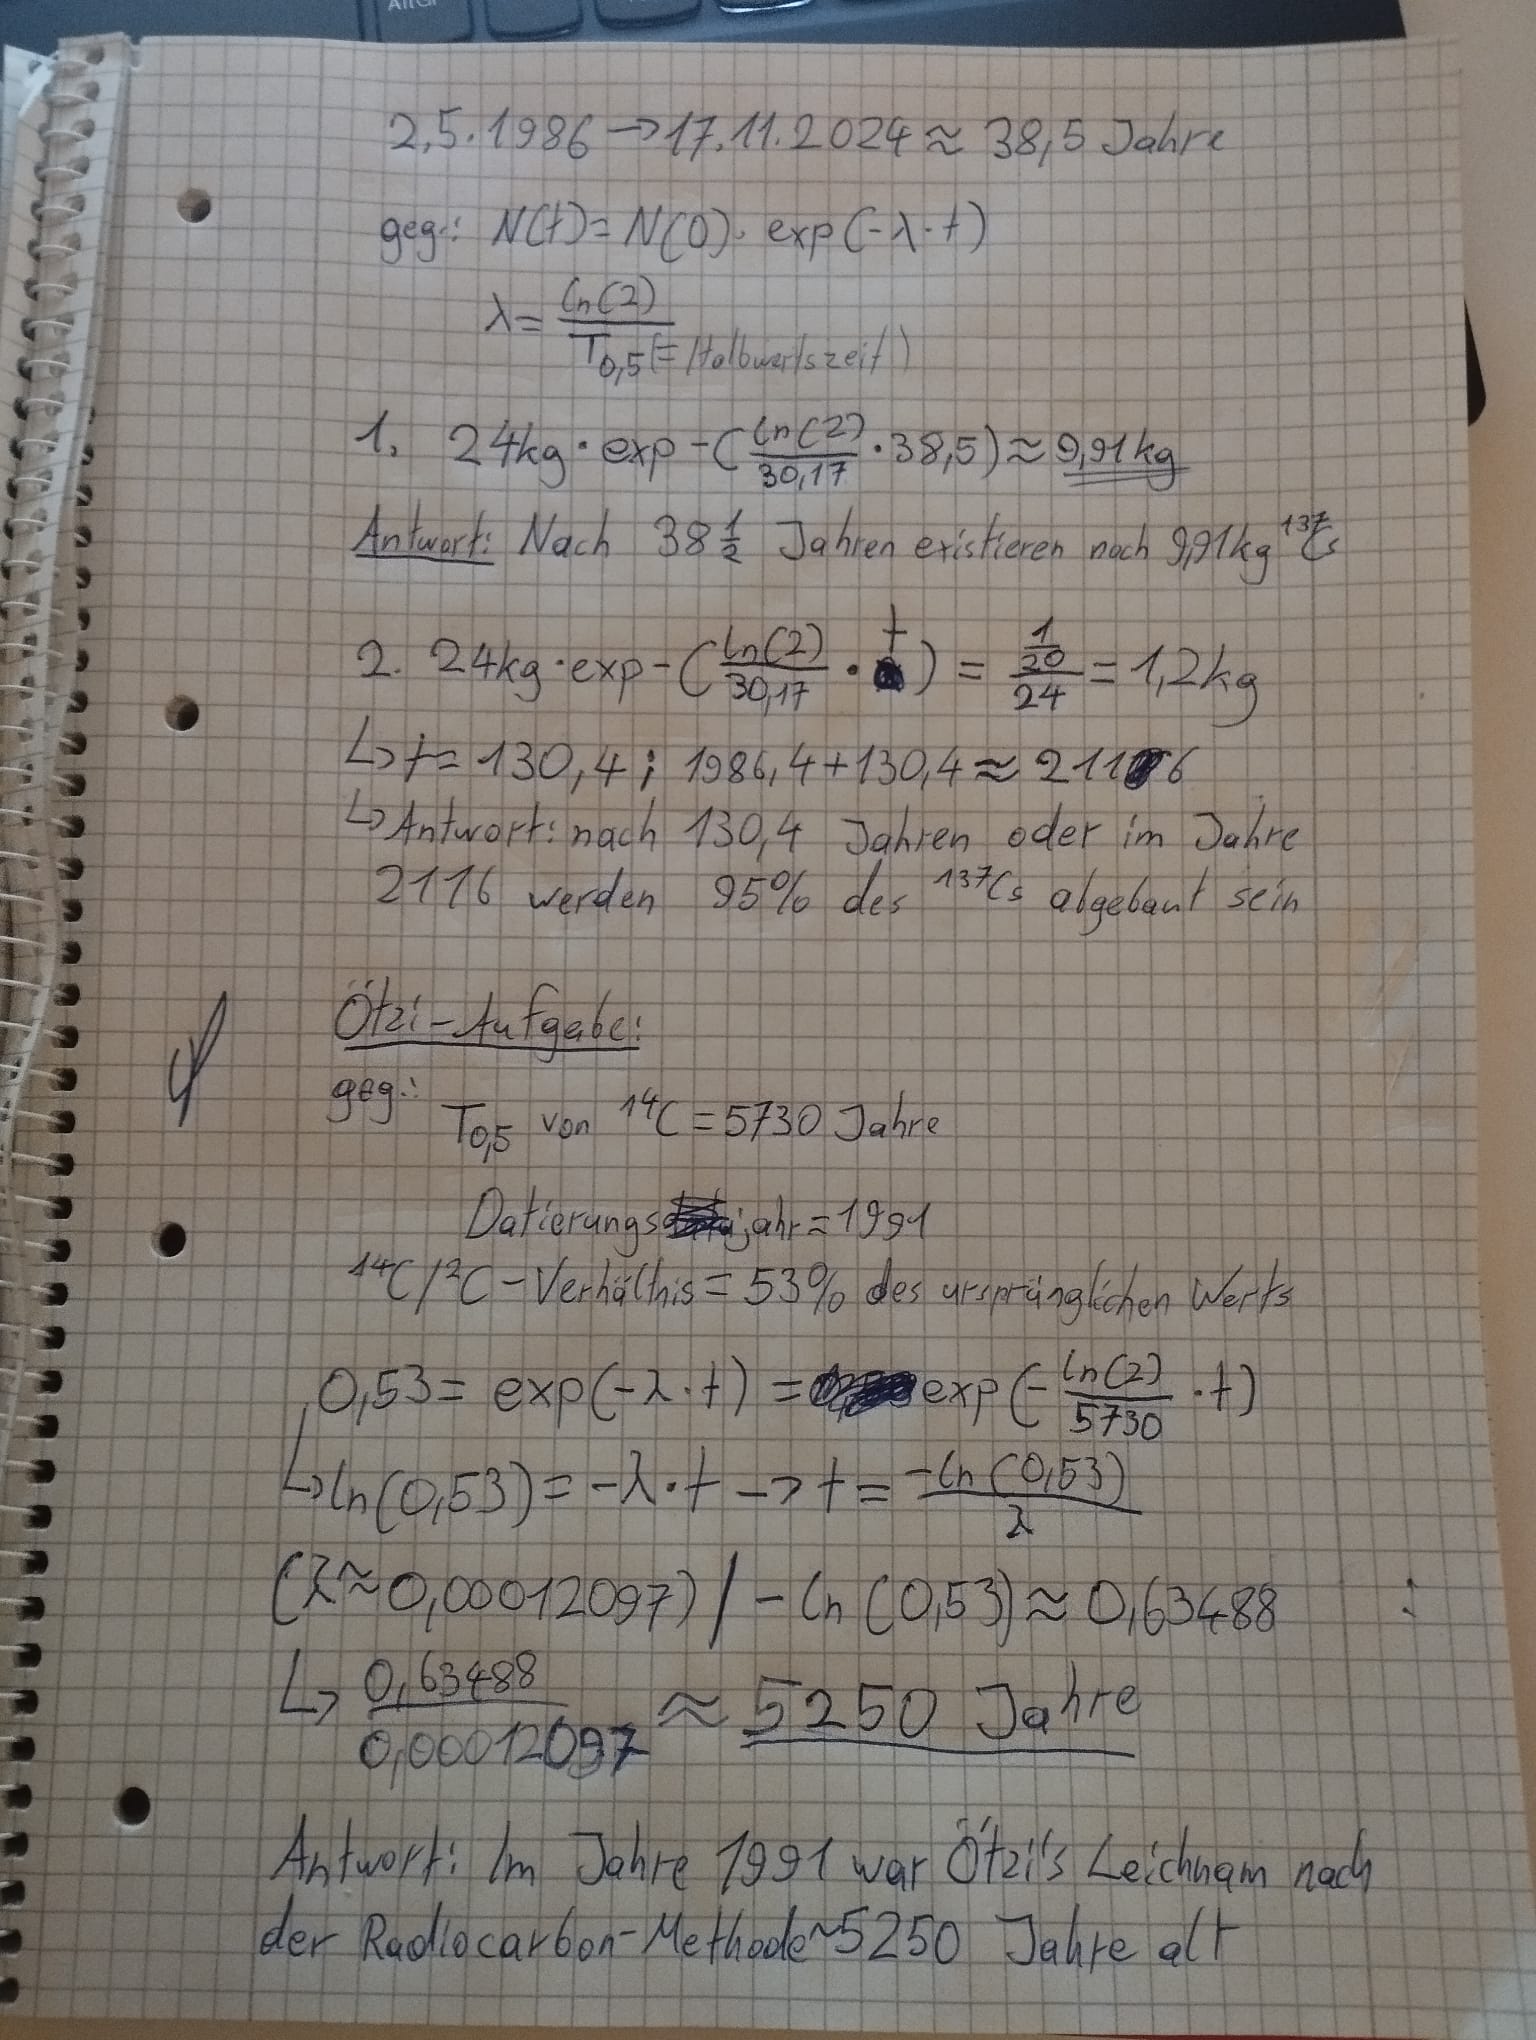 AltGr
2.5.1986 → 17.11.2024 ≈ 38,5 Jahre
geg.: N(t) = N(0) · exp(-λ·t)
λ = ln(2) / T0,5 (= Halbwertszeit)
1. 24kg · exp -(ln(2)/30,17 · 38,5) ≈ 9,91kg
Antwort: Nach 38 1/2 Jahren existieren noch 9,91kg ¹³⁷Cs
2. 24kg · exp -(ln(2)/30,17 · t) = 1/20 / 24 = 1,2kg
↳ t = 130,4; 1986,4 + 130,4 ≈ 2116
↳ Antwort: nach 130,4 Jahren oder im Jahre
2116 werden 95% des ¹³⁷Cs abgebaut sein
Ötzi-Aufgabe:
geg.:
T0,5 von ¹⁴C = 5730 Jahre
Datierungsjahr = 1991
¹⁴C/¹²C-Verhältnis = 53% des ursprünglichen Werts
0,53 = exp(-λ·t) = exp(-ln(2)/5730 · t)
↳ ln(0,53) = -λ·t → t = -ln(0,53)/λ
(λ ≈ 0,00012097) / -ln(0,53) ≈ 0,63488 :
↳ 0,63488/0,00012097 ≈ 5250 Jahre
Antwort: Im Jahre 1991 war Ötzi's Leichnam nach
der Radiocarbon-Methode ~5250 Jahre alt